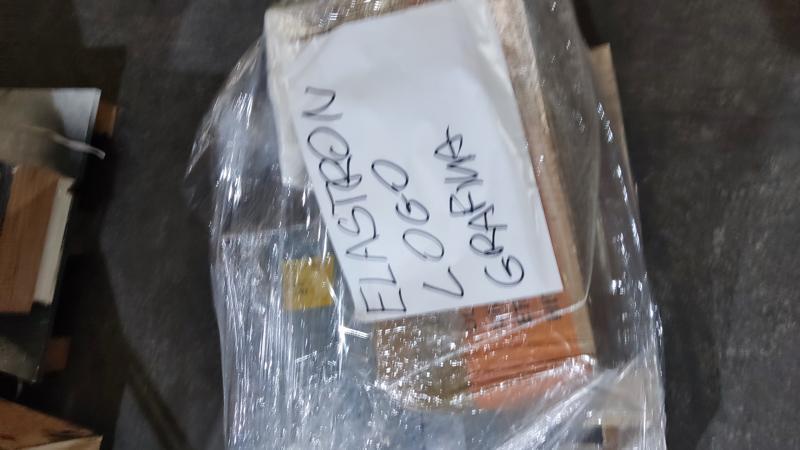 ELASTRON
LOGO
GRAFMA